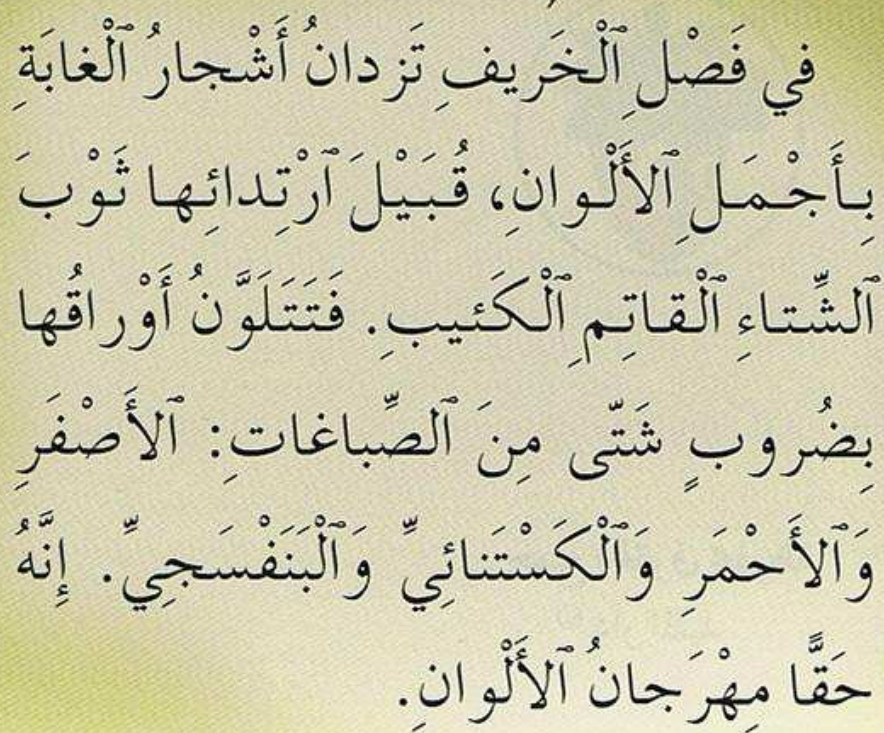 في فَصْلِ ٱلْخَريفِ تَزدانُ أَشْجارُ ٱلْغابَةِ
بِأَجْمَلِ ٱلأَلْوانِ، قُبَيْلَ ٱرْتِدائِها ثَوْبَ
ٱلشِّتاءِ ٱلْقاتِمِ ٱلْكَئيبِ. فَتَتَلَوَّنُ أَوْراقُها
بِضُروبٍ شَتّى مِنَ ٱلصِّباغاتِ: ٱلأَصْفَرِ
وَٱلأَحْمَرِ وَٱلْكَسْتَنائِيِّ وَٱلْبَنَفْسَجِيِّ. إِنَّهُ
حَقًّا مِهْرَجانُ ٱلأَلْوانِ.